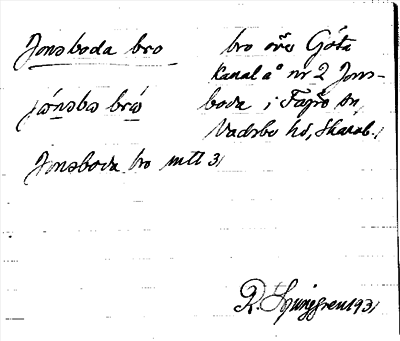 Jonsboda bro
bro över Göta
kanal å nr 2 Jons-
boda i Fägre sn,
Vadsbo hd, Skarab.
Jonsboda bro mtl 3
R. Ljunggren 1931